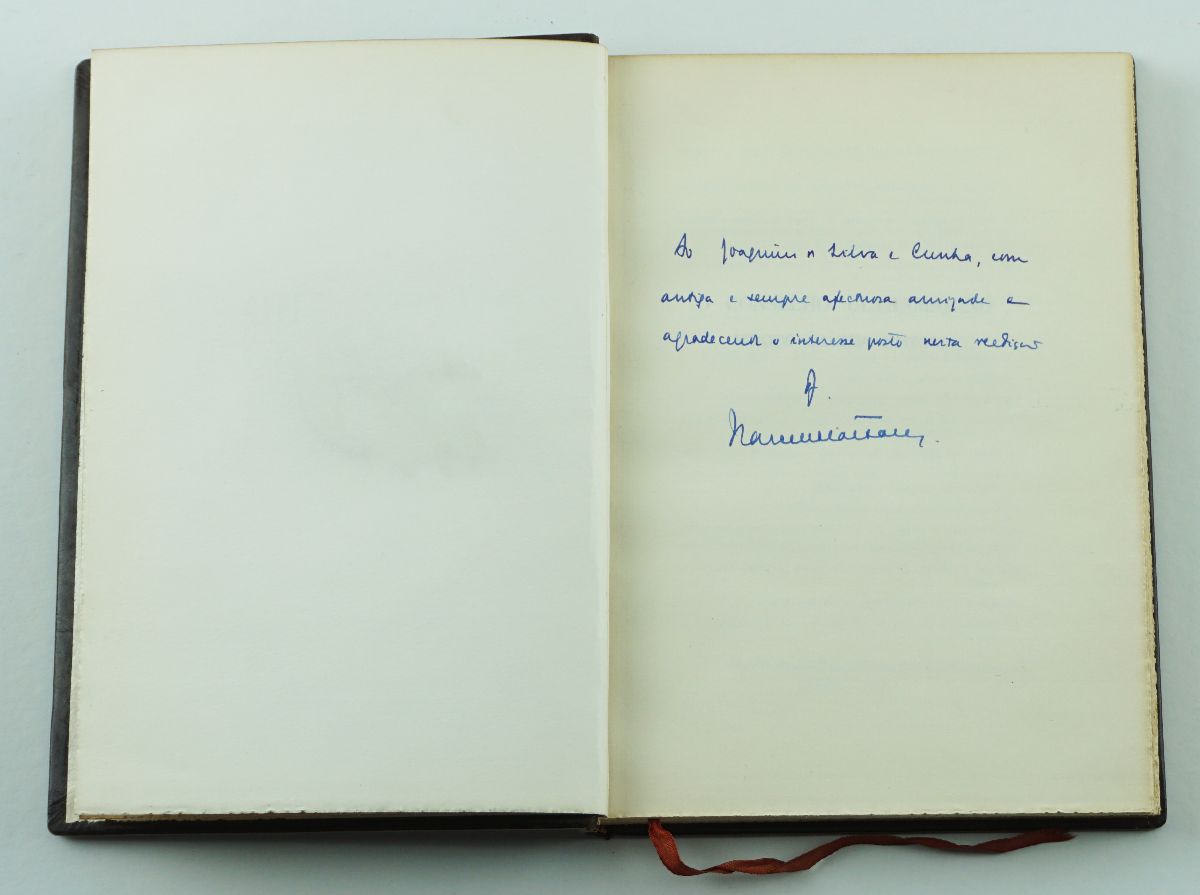 Ao Joaquim da Silva e Cunha, com
antiga e sempre afectuosa amizade e
agradecendo o interesse posto nesta reedição
of.
Marcello Caetano